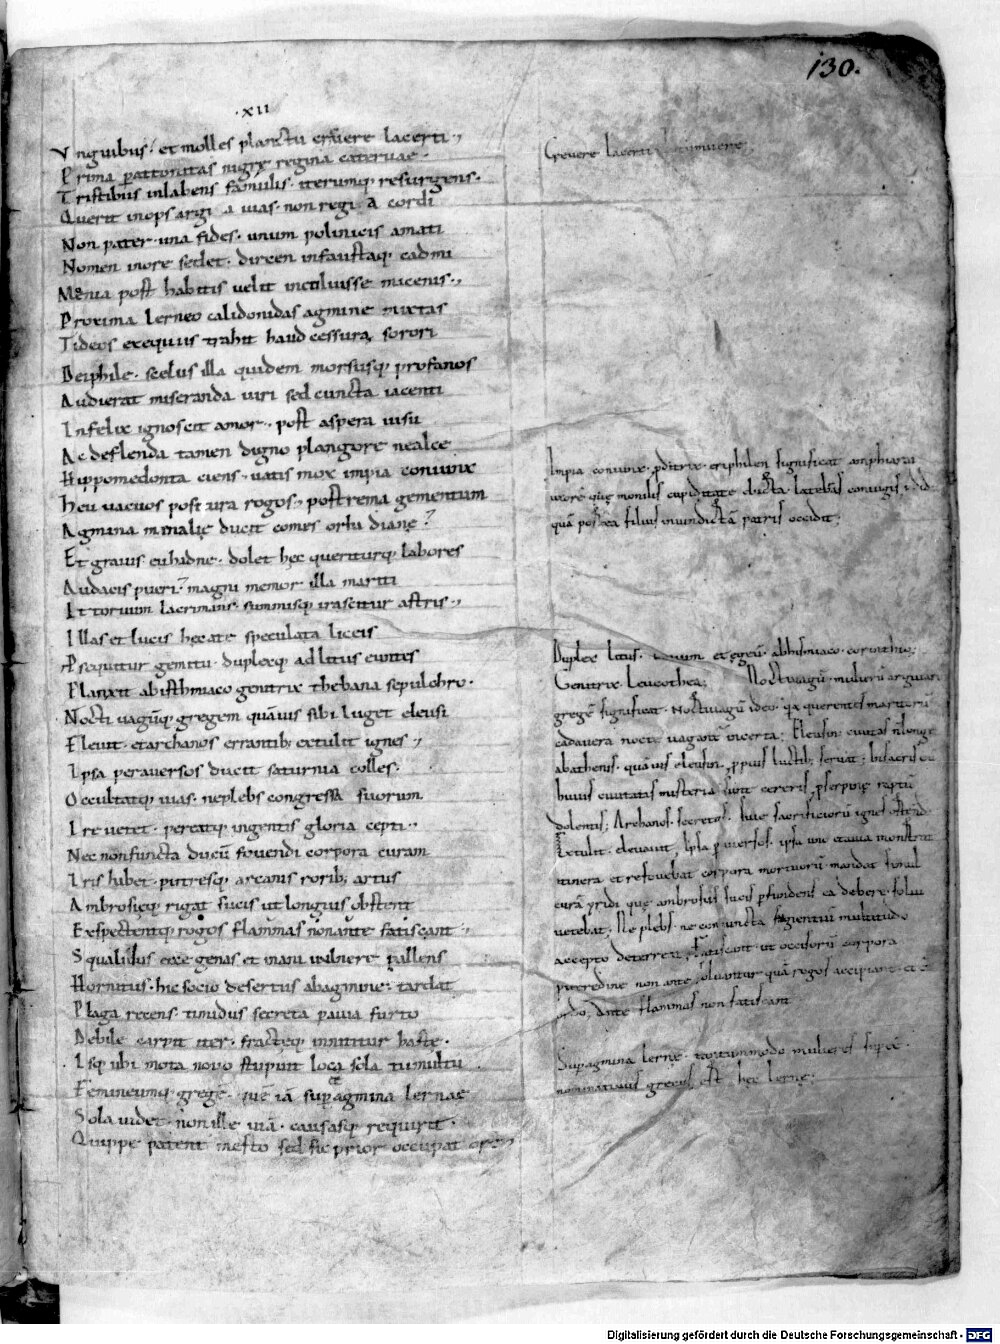 130.
·XII
Vnguibus? et molles planctu creuere lacerti.,
Prima per attonitas nigrę regina cateruae.
Tristibus inlabens famulis. iterumq; resurgens.
Querit inops argia uias. non regia cordi
Non pater. una fides. unum polinicis amati
Nomen in ore sedet. dircen infaustaq; cadmi
Menia post habitis uelit incoluisse micenis.,
Proxima lerneo calidonidas agmine mixtas
Tideos exequiis trahit haud cessura sorori
Deiphile. scelus illa quidem morsusq; profanos
Audierat miseranda uiri sed cuncta iacenti
Infelix ignoscit amor., post aspera uisu
Ac deflenda tamen digno plangore nealce
Hippomedonta ciens. uatis mox impia coniunx
Heu uacuos positura rogos., postrema gementum
Agmina menalię ducit comes orba dianę?
Et grauis euhadne. dolet hęc queriturq; labores
Audacis pueri? magni memor illa mariti
It toruum lacrimans. summisq; irascitur astris.,
Illas et lucis hęcate speculata liceis
Psequitur gemitu. duplexq; ad litus euntes
Planxit ab isthmiaco genitrix thebana sepulchro.
Nocti uagūq; gregem quāuis sibi luget eleusi
Fleuit. et archanos errantib; extulit ignes.,
Ipsa per auersos ducit saturnia colles.
Occultatq; uias. ne plebs congressa suorum
Ire uetet. pereatq; ingentis gloria cepti.,
Nec non functa ducū fouendi corpora curam
Iris habet. putresq; arcanis rorib; artus
Ambrosieq; rigat sucis ut longius obstent
Exspectentq; rogos flammas non ante fatiscant.,
Squalidus ecce genas et inani uulnere pallens
Hornitus. hic socio desertus ab agmine. tardat
Plaga recens. timidus secreta pauia furto
Debile carpit iter. fractęq; innititur hastę.
Isq; ubi mota nouo stupuit loca sola tumultu
Femineumq; gregē. quę iā supagmina lernae
Sola uidet. non ille uiā. causasq; requirit.
Quippe patent mesto sed sic prior occupat ore
Creuere lacerti
Impia coniunx. pditrix. eriphilen significat amphiarai
uxorē quę monilis cupiditate ducta latebras coniugis pdid
quā postea filius in uindictā patris occidit;
Duplex litus. et egeū. ab histmiaco corinthio;
Genitrix Leucothea; Noctiuagū. mulierū arguarū
gregē significat. Noctiuagū ideo. qa querentes maritorū
cadauera nocte uagantr incerta; Eleusin ciuitas n longe
ab athenis. quāuis eleusin. ppriis luctib; seruat; bisacris
huius ciuitatis misteria sunt cereris. pserpinę raptū
dolentis; Archanos. secretos. siue sacrificiorū ignes ostend
Extulit. eleuauit; Ipsa p uersos. ipsa
itinera et refouebat corpora mortuorū mandat
curā yridi quę ambrosiis sucis pfundens ea debere solui
uetebat; Ne plebs. ne coniuncta sapientiū multitudo
accepto deterreri; Fatiscant. ut occisorū corpora
putredine non ante soluantur quā rogos accipiant. et ē
ordo; ante flammas non fatiscant
Supagmina lernę. tantummodo mulieres
nominatiuus gręcus est hęc lernę;
Digitalisierung gefördert durch die Deutsche Forschungsgemeinschaft - DFG